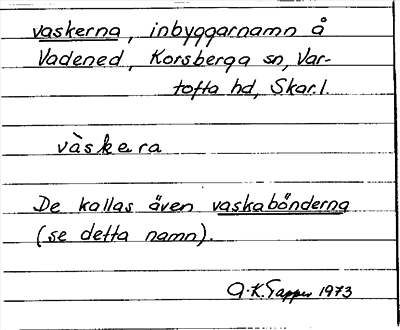 vaskerna, inbyggarnamn å
Vadened, Korsberga sn, Var-
tofta hd, Skar.l.
vàskera
De kallas även vaskabönderna
(se detta namn).
A.K. Tapper 1973